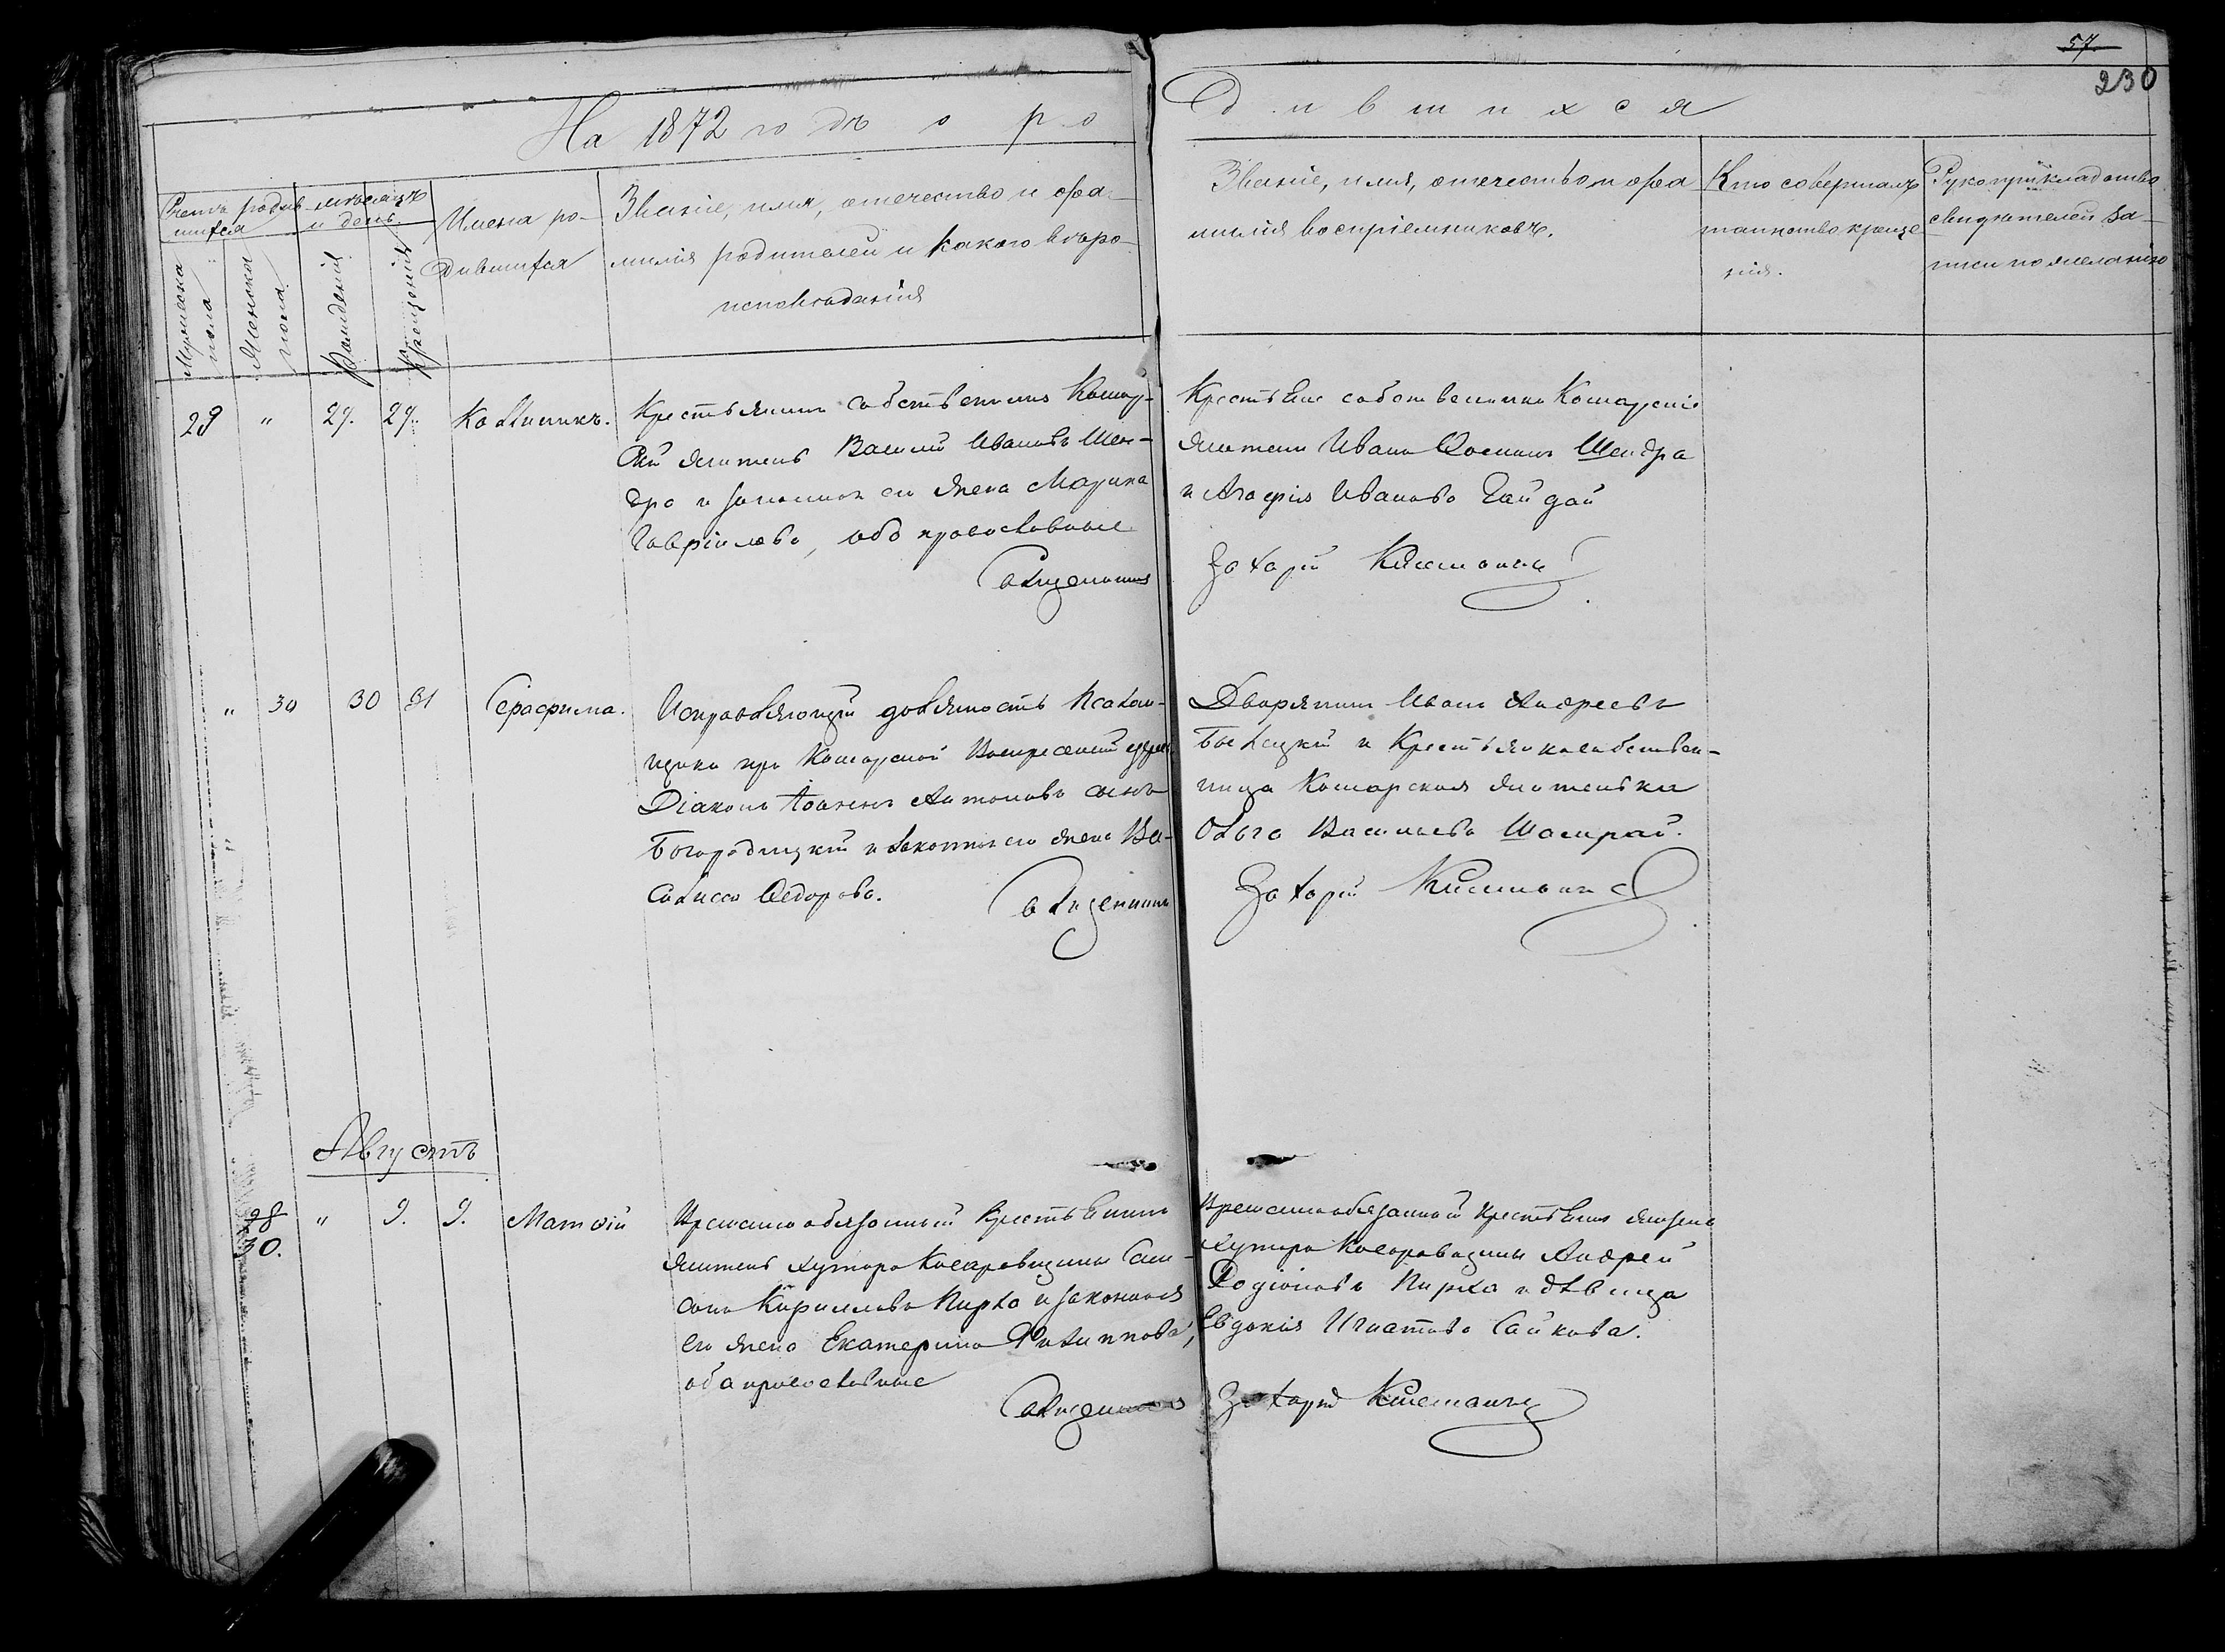 57
230
На 1872 годъ о ро
дившихся
Счетъ родив
шихся
мѣсяцъ
и день
Мужеска
пола
Женска
пола
Рожденія
Крещенія
Имена ро-
дившихся
Званіе, имя, отечество и фа-
милія родителей и какого вѣро-
исповѣданія
Званіе, имя, отечество и фа
милія воспріемниковъ.
Кто совершалъ
таинство креще
нія.
Рукоприкладство
свидѣтелей за-
писи по желанію
29 " 29. 29. Каллиникъ.
Крестьянинъ собственникъ Кошар-
скій житель Василій Ивановъ Шен-
дра и законная его жена Марина
Гавріилова, оба православные
Священникъ
Крестьяне собственники Кошарскіе
жители Иванъ Шендра
и Агафія Иванова Гайдай
Захарій
" 30 30 31 Серафима.
Исправляющій должность Псалом-
щика при Кошарской Воскресенской церкви
Діаконъ Іоаннъ Антоновъ сынъ
Богородицкій и законная его жена Ва-
силисса Ѳедорова.
Священникъ
Дворянинъ Иванъ Андреевъ
Бѣлецкій и Крестьянка собствен-
ница Кошарская жителька
Ольга Васильева Шамрай.
Захарій
Августъ
28
30. " 9. 9. Матѳій
Временнообязанный Крестьянинъ
житель хутора Косаровщины Сам-
сонъ Кириловъ Пирха и законная
его жена Екатерина Филиппова,
оба православные
Священникъ
Временнообязанный Крестьянинъ житель
хутора Косаровщины Андрей
Родіоновъ Пирха и дѣвица
Евдокія Игнатова Сайкова.
Захарій